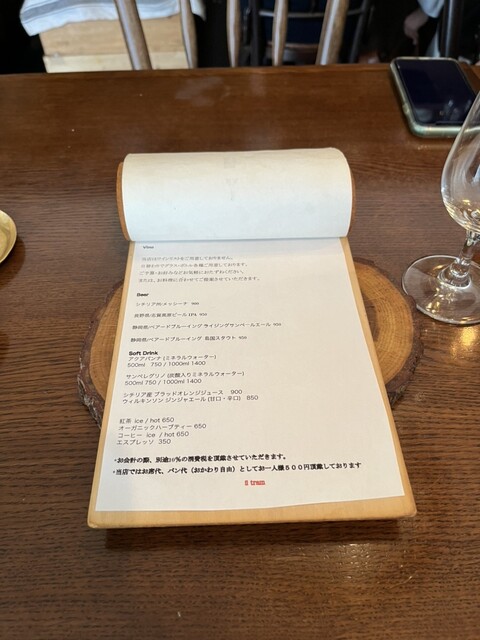 Wine
当店ではワインリストをご用意しておりません。
ご予算・お好みなどお気軽におたずねください。
または、お料理に合わせてご提案させていただきます。
Beer
シチリア州/メッシーナ 900
長野県/志賀高原ビール IPA 950
静岡県/ベアードブルーイング ライジングサンペールエール 950
静岡県/ベアードブルーイング 島国スタウト 950
Soft Drink
アクアパンナ (ミネラルウォーター)
500ml 750 / 1000ml 1400
サンペレグリノ (炭酸入りミネラルウォーター)
500ml 750 / 1000ml 1400
シチリア産 ブラッドオレンジジュース 900
ウィルキンソン ジンジャエール (甘口・辛口) 850
紅茶 ice / hot 650
オーガニックハーブティー 650
コーヒー ice / hot 650
エスプレッソ 350
・お会計の際、別途10%の消費税を頂戴させていただきます。
・当店ではお席代、パン代（おかわり自由）としてお一人様５００円頂戴しております
Il tram